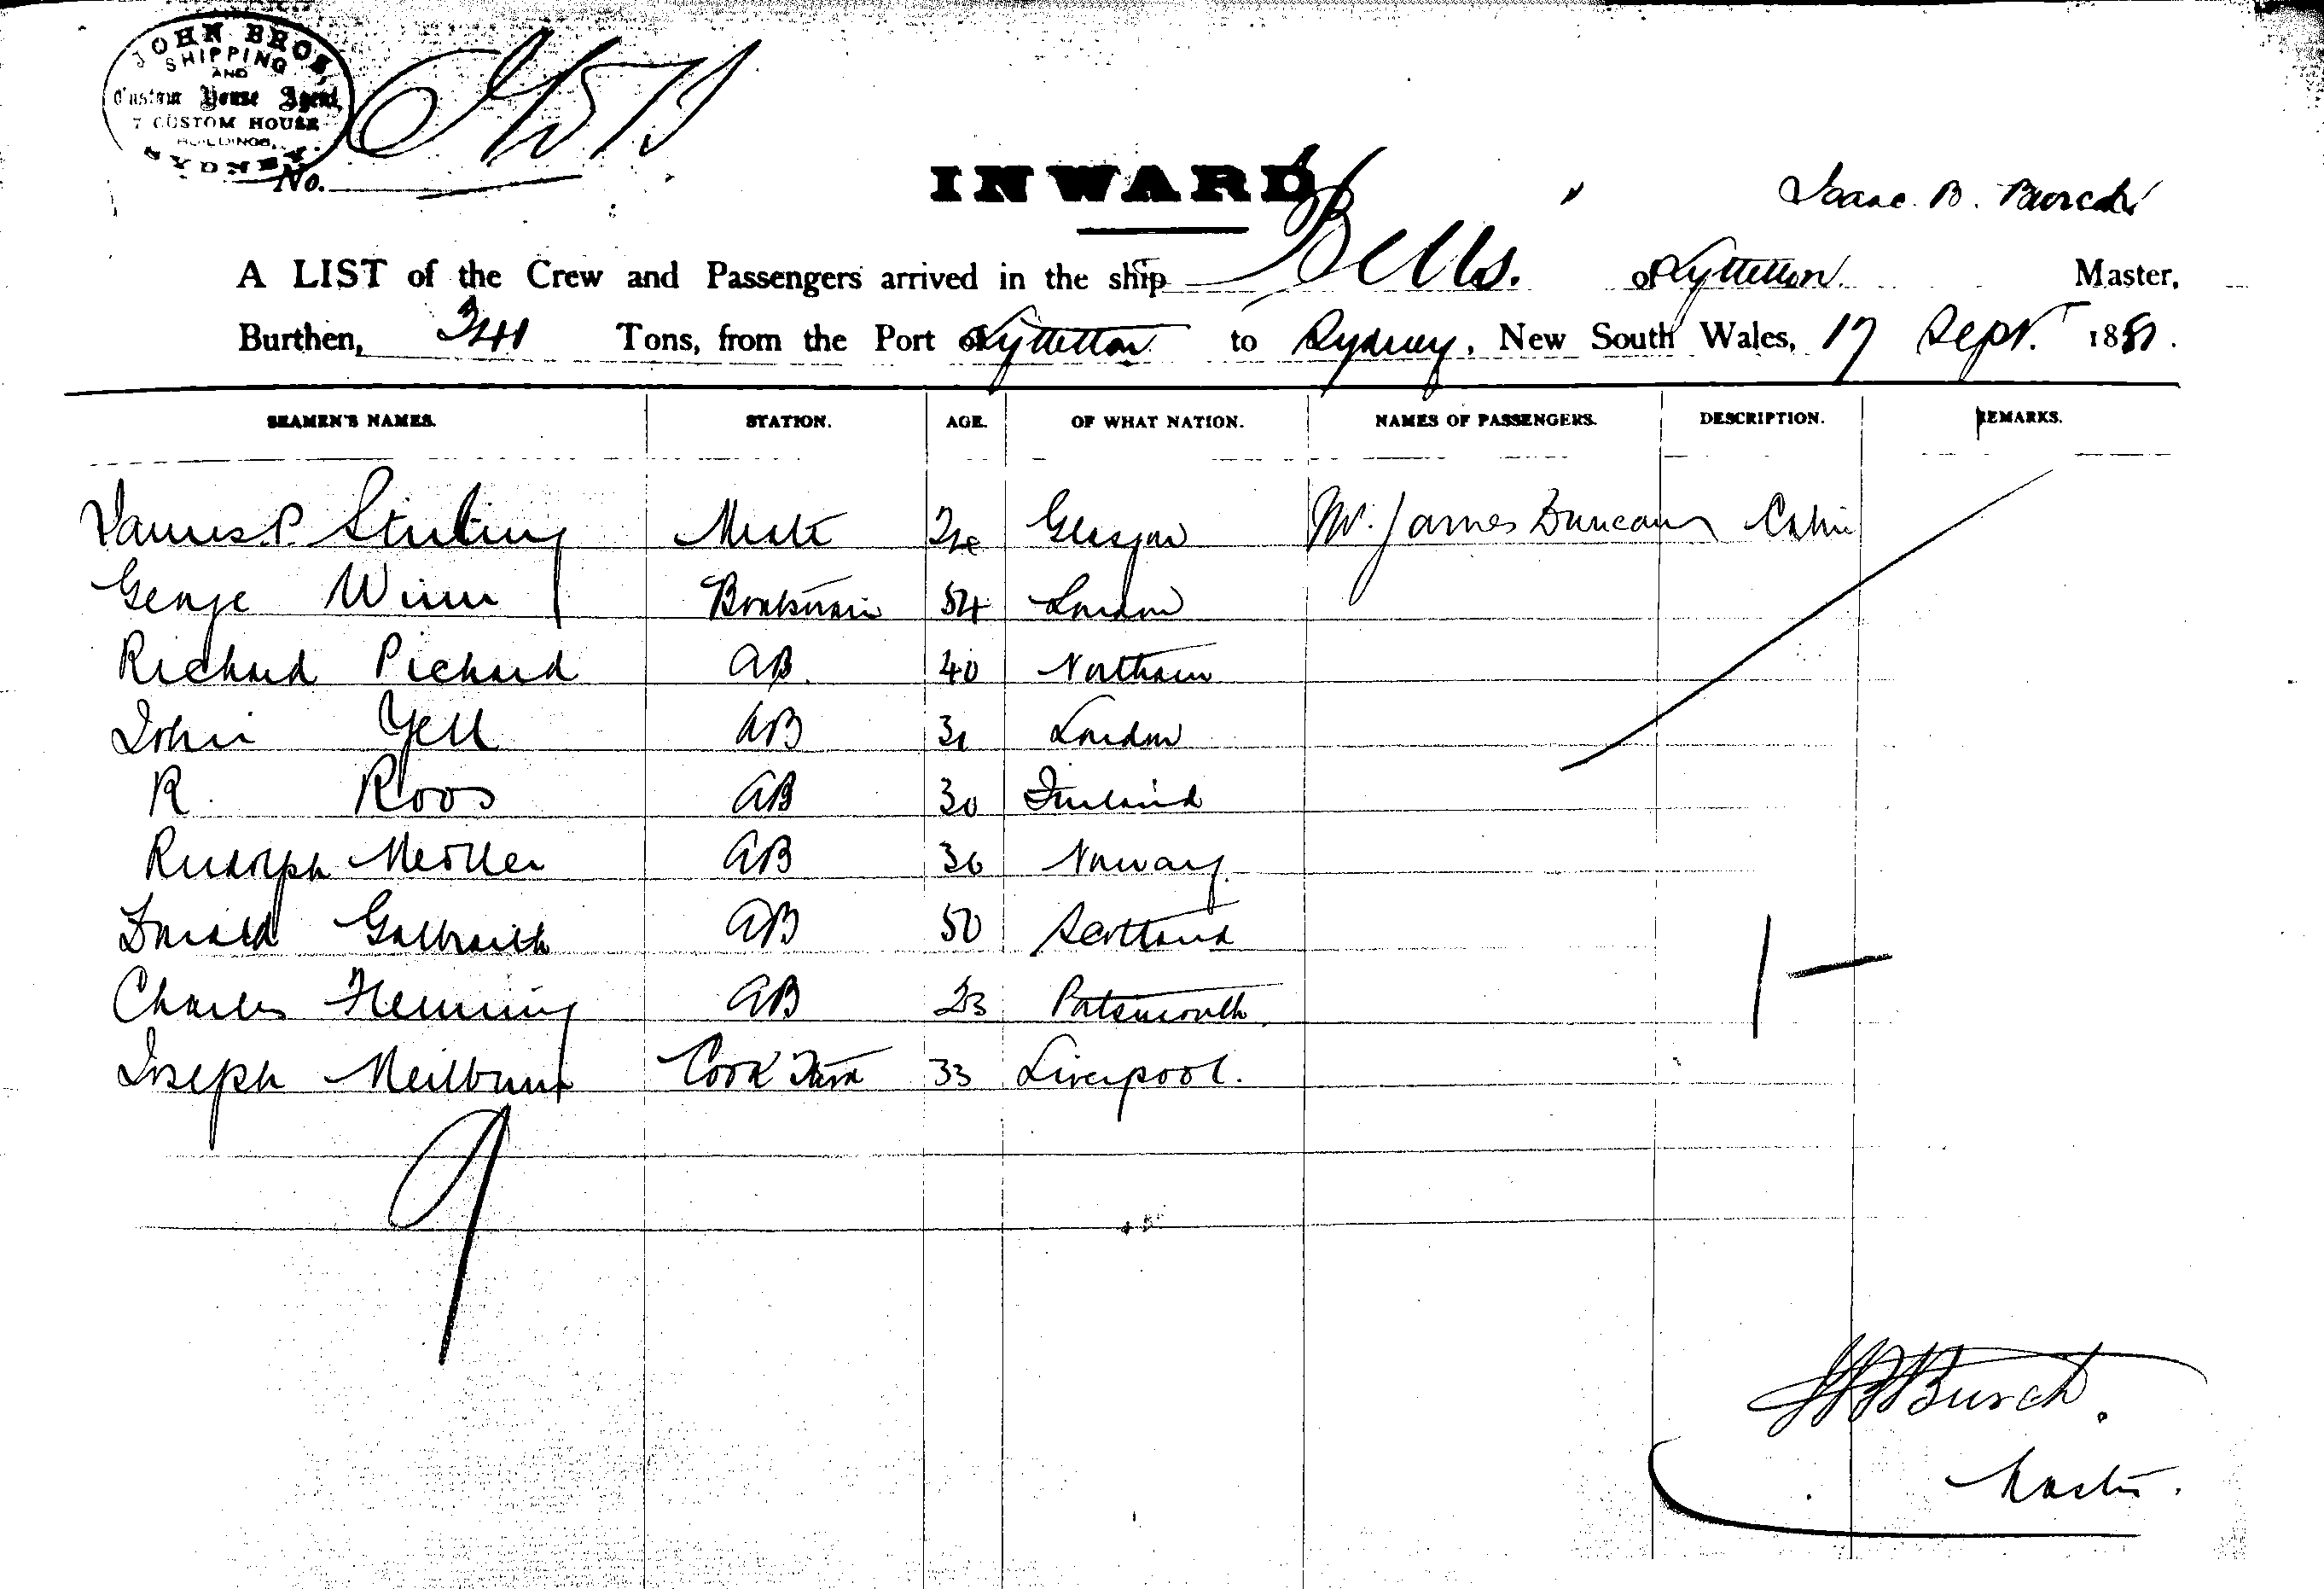 JOHN BROS,
SHIPPING
AND
Custom House Agent,
7 CUSTOM HOUSE
BUILDINGS,
SYDNEY.
No.
INWARD
Isaac B. Busch
A LIST of the Crew and Passengers arrived in the ship Bells. of Lyttelton Master,
Burthen, 341 Tons, from the Port of Lyttelton to Sydney, New South Wales, 17 Sept. 1881.
SEAMEN'S NAMES. STATION. AGE. OF WHAT NATION. NAMES OF PASSENGERS. DESCRIPTION. REMARKS.
James P. Stirling Mate Glasgow Mr. James Duncan Cabin
George Winn Boatswain 54 London
Richard Pickard AB. 40 Northam
John Yell AB 31 London
R. Roos AB 30 Finland
Rudolph Moller AB 36 Norway.
Donald Galbraith AB 50 Scotland
Charles Fleming AB 23 Portsmouth.
Joseph Meilbrun Cook 33 Liverpool.
9
1 —
Busch.
Master.